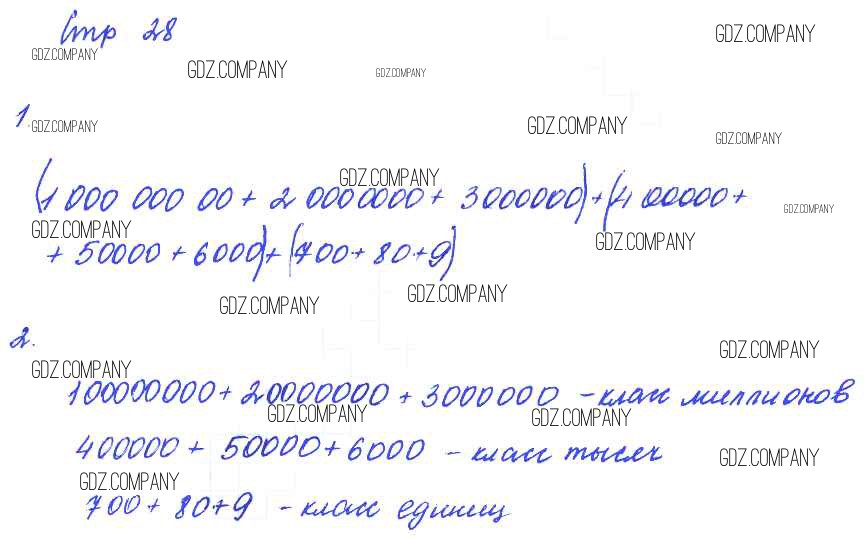 Стр 28
GDZ.COMPANY
GDZ.COMPANY
GDZ.COMPANY
GDZ.COMPANY
1.
GDZ.COMPANY
GDZ.COMPANY
GDZ.COMPANY
GDZ.COMPANY
(1 000 000 00 + 2 0000000 + 3000000) + (400000 +
GDZ.COMPANY
GDZ.COMPANY
GDZ.COMPANY
+ 50000 + 6000) + (700 + 80 + 9)
GDZ.COMPANY
GDZ.COMPANY
2.
GDZ.COMPANY
GDZ.COMPANY
100000000 + 20000000 + 3000000 - класс миллионов
GDZ.COMPANY
GDZ.COMPANY
400000 + 50000 + 6000 - класс тысяч
GDZ.COMPANY
GDZ.COMPANY
700 + 80 + 9 - класс единиц